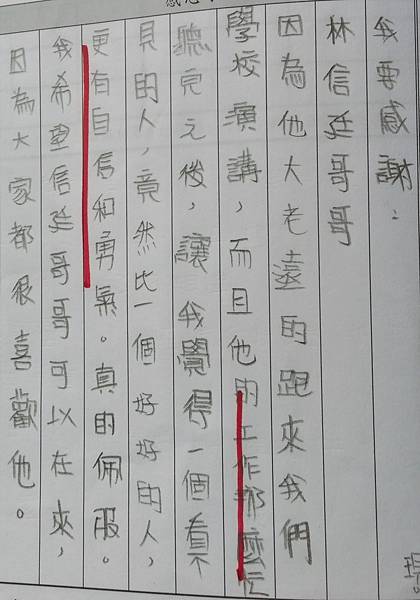 我要感謝：
林信廷哥哥
因為他大老遠的跑來我們
學校演講，而且他的工作那麼忙
聽完之後，讓我覺得一個看不
見的人，竟然比一個好好的人，
更有自信和勇氣。真的佩服。
我希望信廷哥哥可以在來，
因為大家都很喜歡他。